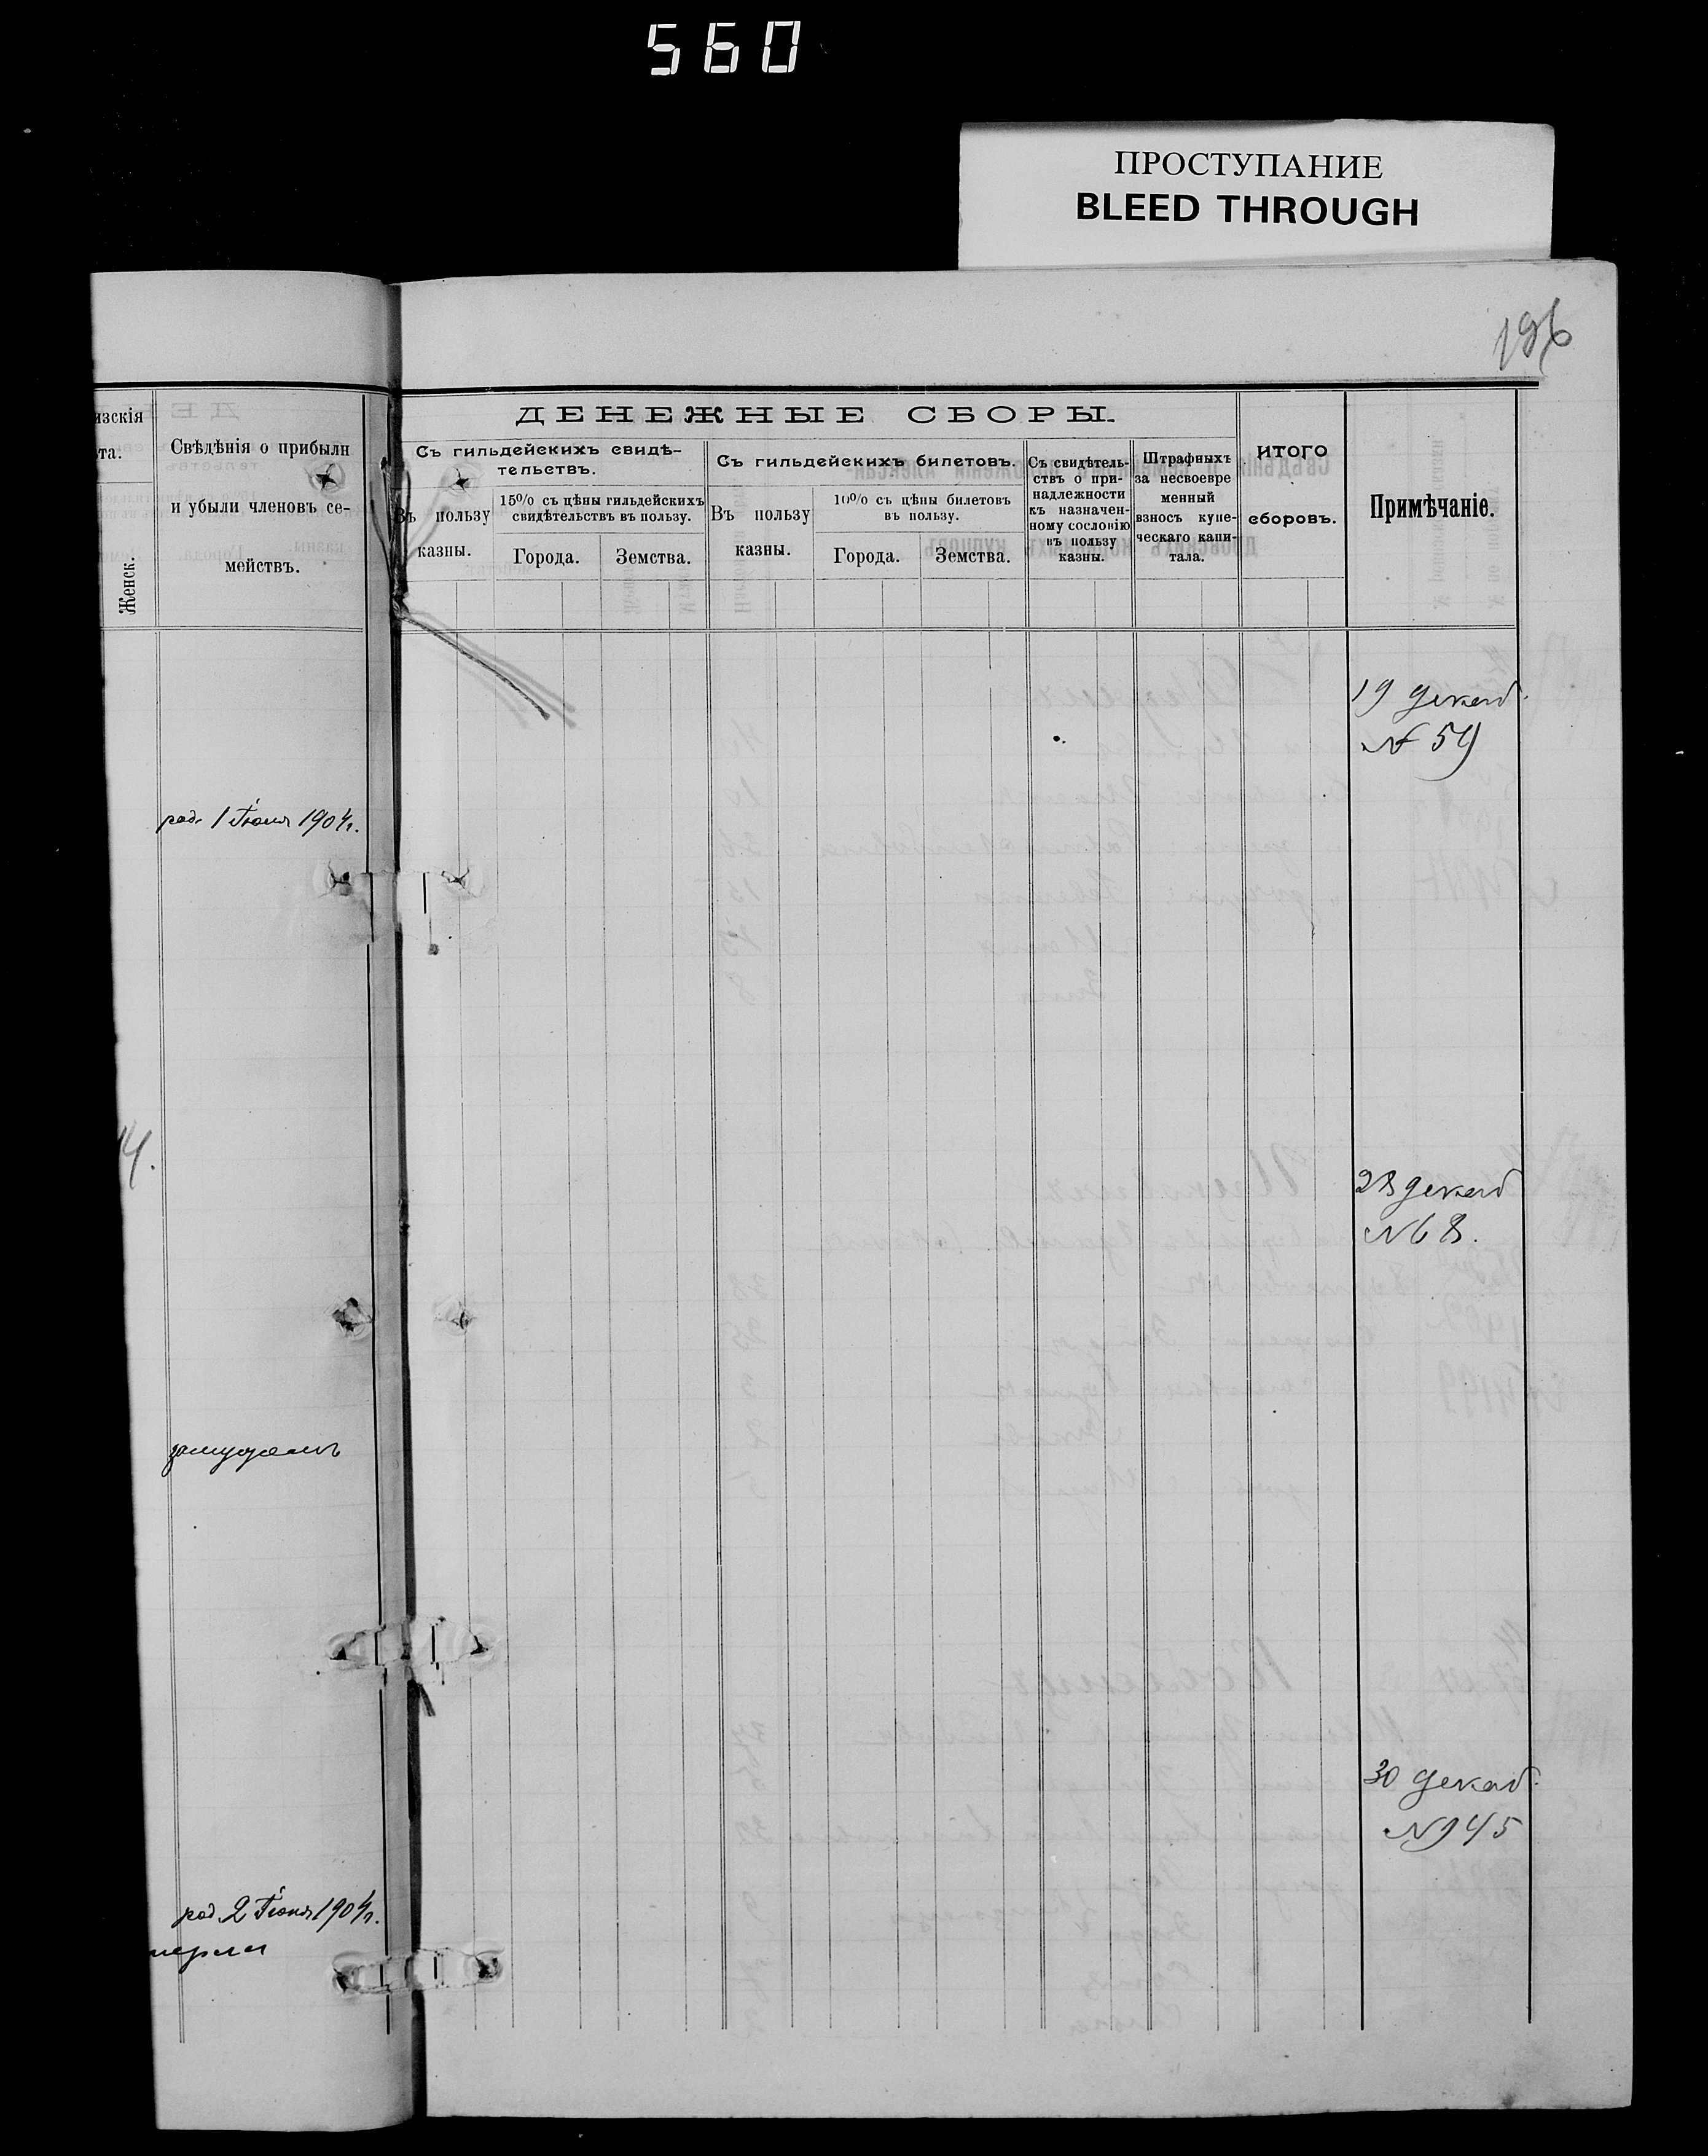 560
ПРОСТУПАНИЕ
BLEED THROUGH
196
изскія
та.
Женск.
Свѣдѣнія о прибыли
и убыли членовъ се-
мействъ.
ДЕНЕЖНЫЕ СБОРЫ.
Съ гильдейскихъ свидѣ-
тельствъ.
Въ пользу
казны.
15% съ цѣны гильдейскихъ
свидѣтельствъ въ пользу.
Города.
Земства.
Съ гильдейскихъ билетовъ.
Въ пользу
казны.
10% съ цѣны билетовъ
въ пользу.
Города.
Земства.
Съ свидѣтель-
ствъ о при-
надлежности
къ назначен-
ному сословію
въ пользу
казны.
Штрафныхъ
за несвоевре
менный
взносъ купе-
ческаго капи-
тала.
ИТОГО
сборовъ.
Примѣчаніе.
19 декаб.
№ 59
род. 1 Іюня 1904 г.
4.
28 декаб
№ 68.
замужемъ
30 декаб.
№ 945
род. 2 Іюня 1904 г.